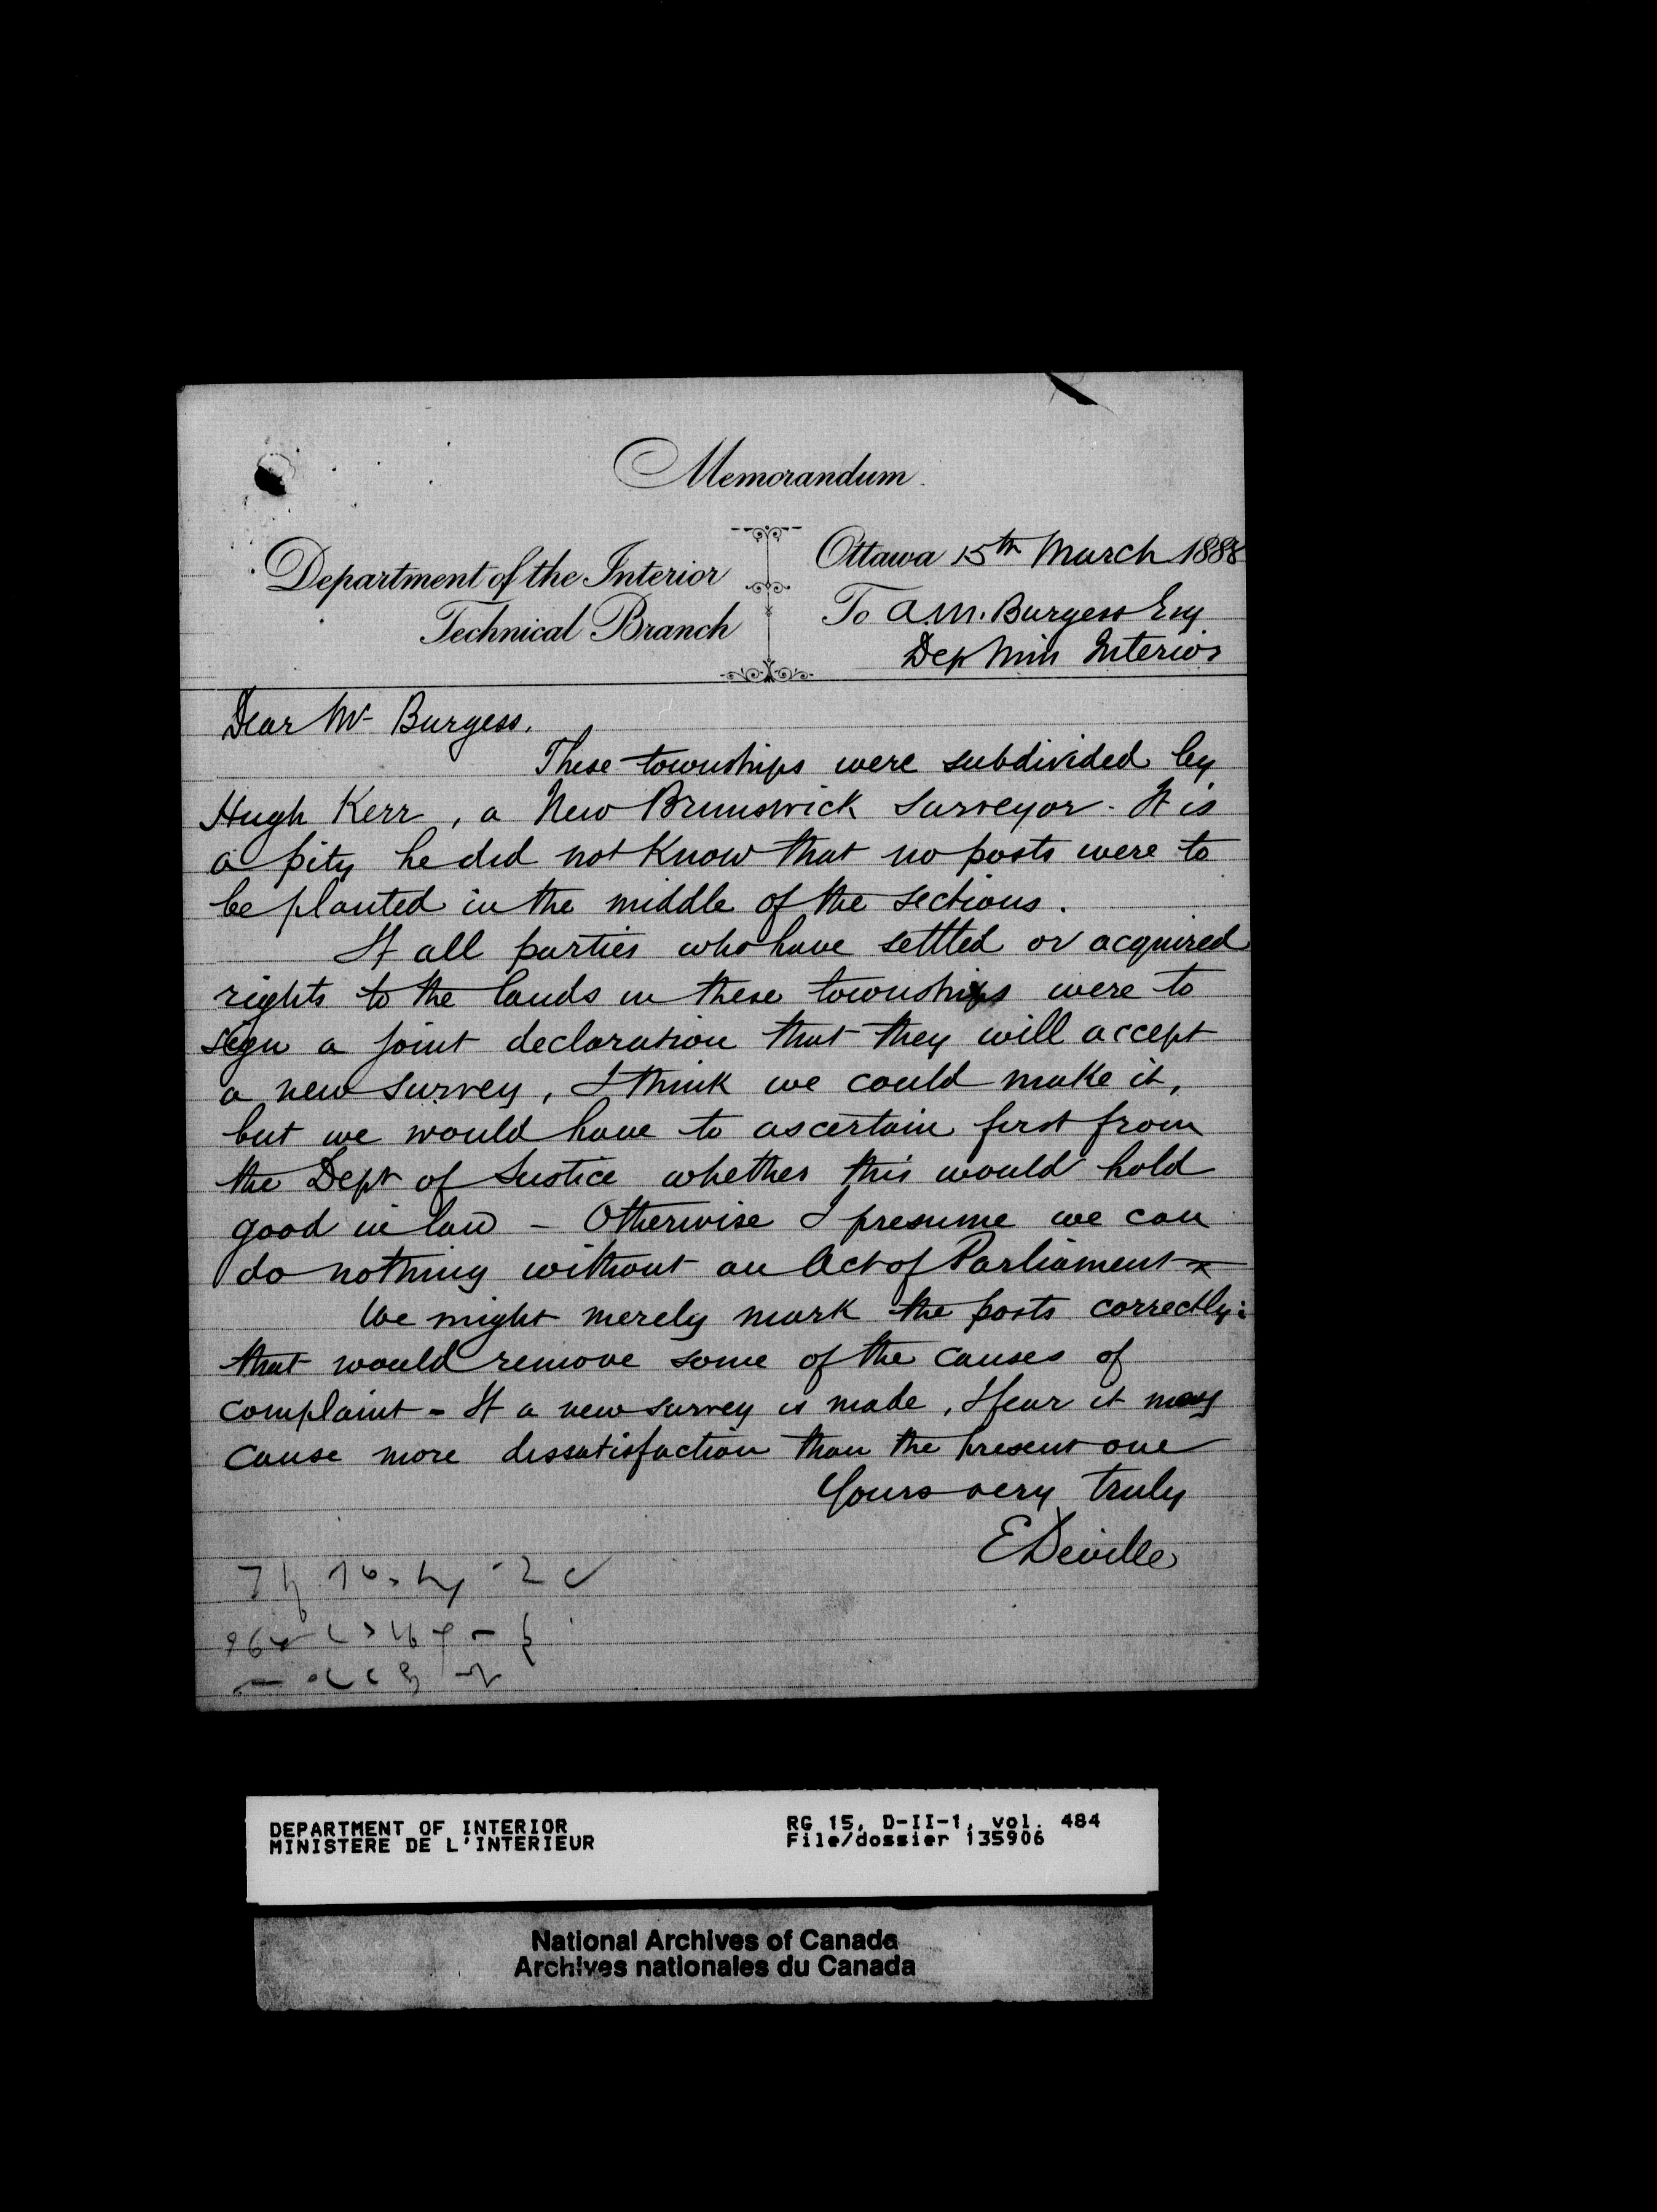 Memorandum.
Department of the Interior
Technical Branch
Ottawa 15th March 1888
To A.M. Burgess Esq
Dep Min Interior
Dear Mr Burgess.
These townships were subdivided by
Hugh Kerr, a New Brunswick Surveyor. It is
a pity he did not know that no posts were to
be planted in the middle of the sections.
If all parties who have settled or acquired
rights to the lands in these townships were to
sign a joint declaration that they will accept
a new survey, I think we could make it,
but we would have to ascertain first from
the Dept of Justice whether this would hold
good in law - Otherwise I presume we can
do nothing without an Act of Parliament
We might merely mark the posts correctly:
that would remove some of the causes of
complaint - If a new survey is made, I fear it may
cause more dissatisfaction than the present one
Yours very truly
E Deville
DEPARTMENT OF INTERIOR
MINISTERE DE L'INTERIEUR
RG 15, D-II-1, vol. 484
File/dossier 135906
National Archives of Canada
Archives nationales du Canada